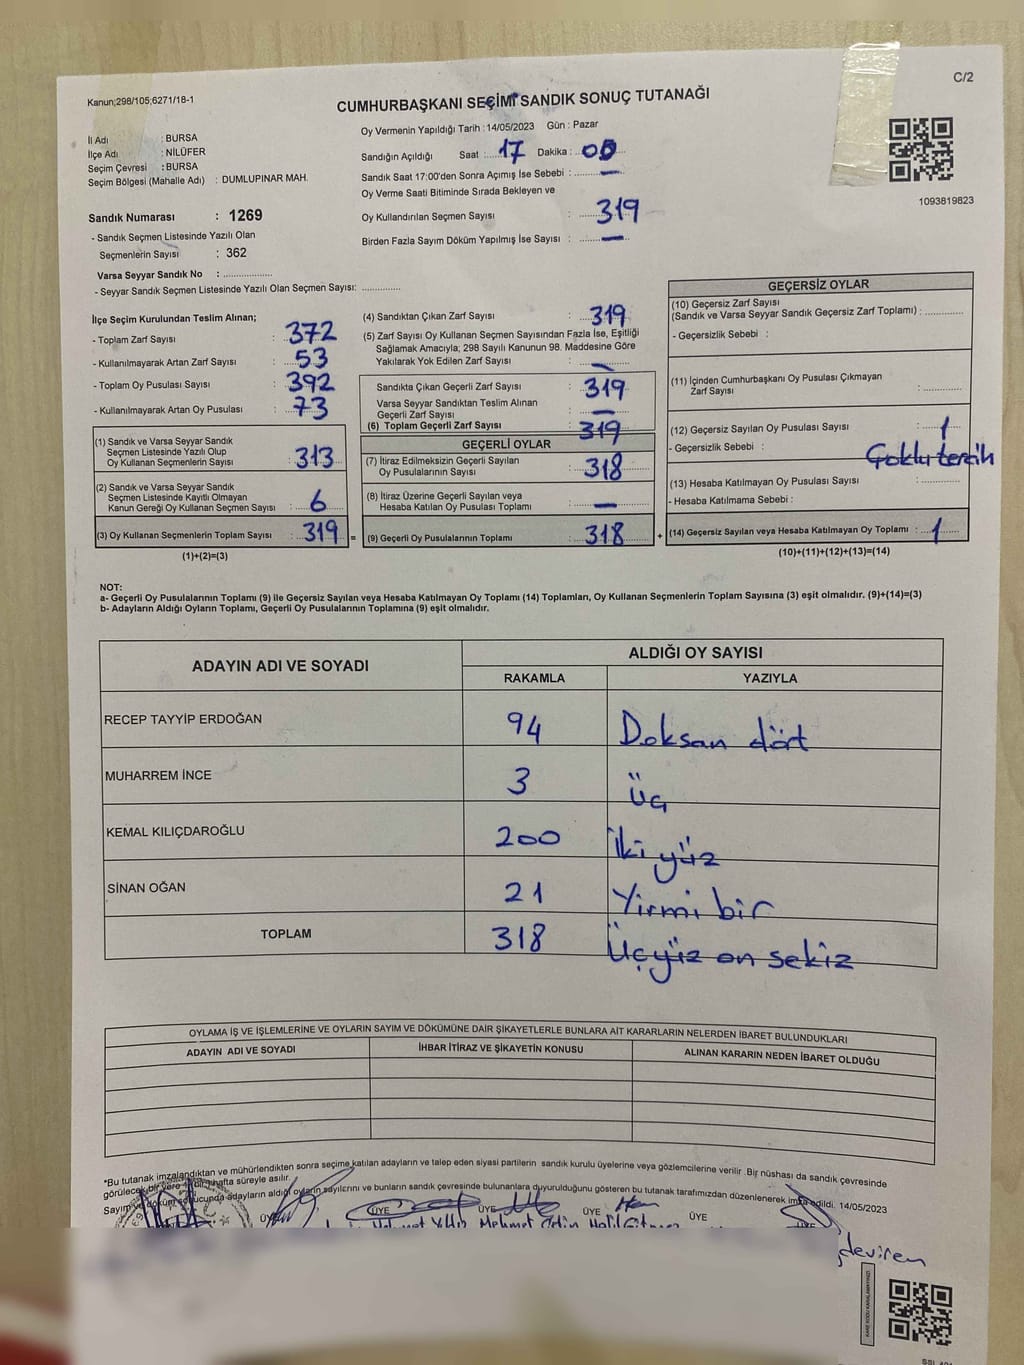 Kanun;298/105;6271/18-1
CUMHURBAŞKANI SEÇİMİ SANDIK SONUÇ TUTANAĞI
C/2
İl Adı : BURSA
İlçe Adı : NİLÜFER
Seçim Çevresi : BURSA
Seçim Bölgesi (Mahalle Adı) : DUMLUPINAR MAH.
Oy Vermenin Yapıldığı Tarih : 14/05/2023 Gün : Pazar
Sandığın Açıldığı Saat : 17 Dakika : 00
Sandık Saat 17:00'den Sonra Açımış İse Sebebi : —
Oy Verme Saati Bitiminde Sırada Bekleyen ve
Oy Kullandırılan Seçmen Sayısı : 319
Birden Fazla Sayım Döküm Yapılmış İse Sayısı : —
1093819823
Sandık Numarası : 1269
- Sandık Seçmen Listesinde Yazılı Olan
Seçmenlerin Sayısı : 362
Varsa Seyyar Sandık No : ....................
- Seyyar Sandık Seçmen Listesinde Yazılı Olan Seçmen Sayısı: ...............
İlçe Seçim Kurulundan Teslim Alınan;
- Toplam Zarf Sayısı : 372
- Kullanılmayarak Artan Zarf Sayısı : 53
- Toplam Oy Pusulası Sayısı : 392
- Kullanılmayarak Artan Oy Pusulası : 73
(1) Sandık ve Varsa Seyyar Sandık
Seçmen Listesinde Yazılı Olup
Oy Kullanan Seçmenlerin Sayısı : 313
(2) Sandık ve Varsa Seyyar Sandık
Seçmen Listesinde Kayıtlı Olmayan
Kanun Gereği Oy Kullanan Seçmen Sayısı : 6
(3) Oy Kullanan Seçmenlerin Toplam Sayısı : 319 =
(1)+(2)=(3)
(4) Sandıktan Çıkan Zarf Sayısı : 319
(5) Zarf Sayısı Oy Kullanan Seçmen Sayısından Fazla İse, Eşitliği
Sağlamak Amacıyla; 298 Sayılı Kanunun 98. Maddesine Göre
Yakılarak Yok Edilen Zarf Sayısı : —
Sandıkta Çıkan Geçerli Zarf Sayısı : 319
Varsa Seyyar Sandıktan Teslim Alınan
Geçerli Zarf Sayısı : —
(6) Toplam Geçerli Zarf Sayısı : 319
GEÇERLİ OYLAR
(7) İtiraz Edilmeksizin Geçerli Sayılan
Oy Pusulalarının Sayısı : 318
(8) İtiraz Üzerine Geçerli Sayılan veya
Hesaba Katılan Oy Pusulası Toplamı : —
(9) Geçerli Oy Pusulalarının Toplamı : 318 +
GEÇERSİZ OYLAR
(10) Geçersiz Zarf Sayısı
(Sandık ve Varsa Seyyar Sandık Geçersiz Zarf Toplamı) : ..............
- Geçersizlik Sebebi :
(11) İçinden Cumhurbaşkanı Oy Pusulası Çıkmayan
Zarf Sayısı : ..............
(12) Geçersiz Sayılan Oy Pusulası Sayısı : 1
- Geçersizlik Sebebi : Çoklu tercih
(13) Hesaba Katılmayan Oy Pusulası Sayısı : ..............
- Hesaba Katılmama Sebebi :
(14) Geçersiz Sayılan veya Hesaba Katılmayan Oy Toplamı : 1
(10)+(11)+(12)+(13)=(14)
NOT:
a- Geçerli Oy Pusulalarının Toplamı (9) ile Geçersiz Sayılan veya Hesaba Katılmayan Oy Toplamı (14) Toplamları, Oy Kullanan Seçmenlerin Toplam Sayısına (3) eşit olmalıdır. (9)+(14)=(3)
b- Adayların Aldığı Oyların Toplamı, Geçerli Oy Pusulalarının Toplamına (9) eşit olmalıdır.
ADAYIN ADI VE SOYADI
ALDIĞI OY SAYISI
RAKAMLA YAZIYLA
RECEP TAYYİP ERDOĞAN 94 Doksan dört
MUHARREM İNCE 3 üç
KEMAL KILIÇDAROĞLU 200 İki yüz
SİNAN OĞAN 21 Yirmi bir
TOPLAM 318 Üçyüz on sekiz
OYLAMA İŞ VE İŞLEMLERİNE VE OYLARIN SAYIM VE DÖKÜMÜNE DAİR ŞİKAYETLERLE BUNLARA AİT KARARLARIN NELERDEN İBARET BULUNDUKLARI
ADAYIN ADI VE SOYADI İHBAR İTİRAZ VE ŞİKAYETİN KONUSU ALINAN KARARIN NEDEN İBARET OLDUĞU
*Bu tutanak imzalandıktan ve mühürlendikten sonra seçime katılan adayların ve talep eden siyasi partilerin sandık kurulu üyelerine veya gözlemcilerine verilir. Bir nüshası da sandık çevresinde
görülecek bir yere bir hafta süreyle asılır.
Sayım ve döküm sonucunda adayların aldığı oyların sayılarını ve bunların sandık çevresinde bulunanlara duyurulduğunu gösteren bu tutanak tarafımızdan düzenlenerek imza edildi. 14/05/2023
ÜYE ÜYE ÜYE ÜYE ÜYE
Mehmet
deviren